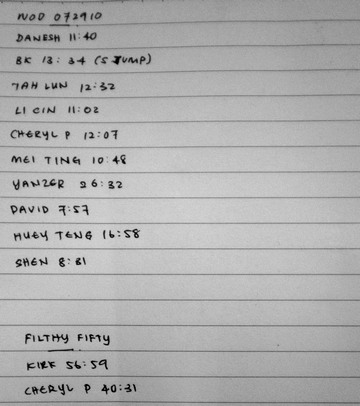 WOD 072910
DANESH 11:40
BK 13:34 (SJUMP)
JAH LUN 12:32
LI CIN 11:02
CHERYL P 12:07
MEI TING 10:48
YANZER 26:32
DAVID 7:57
HUEY TENG 16:58
SHEN 8:31
FILTHY FIFTY
KIRK 56:59
CHERYL P 40:31